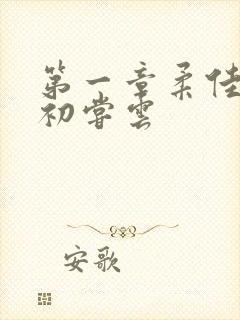 第一章柔佳
初尝云
安歌